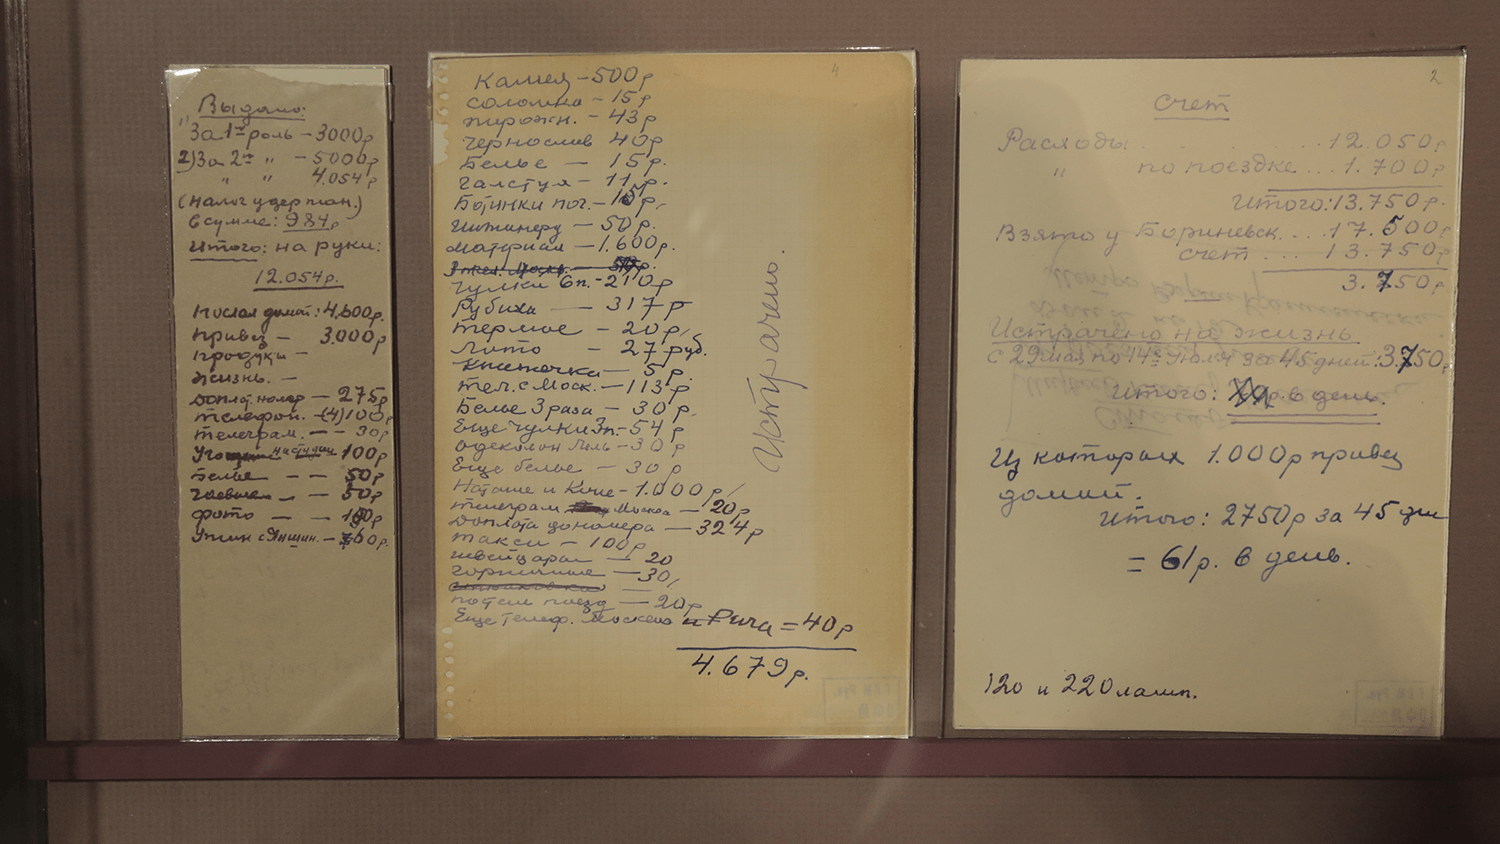 Выдано:
" За 1ю роль – 3000р
2) За 2ю " – 5000р
" " 4.054р
(налог удержан.)
в сумме: 984р
Итого: на руки:
12.054р.
Послал домой: 4.600р.
Привез — 3.000р
Продукты —
Жизнь. —
Доплат. номер — 275р
Телефон. –(4) 100р
Телеграм. — – 30р
100р
Белье — — 50р
— — 50р
Фото — —
Ужин с Яншин. —
4
Камея – 500р
соломка – 15р
пирожн. – 43р
чернослив 40р
Белье — 15р.
галстук – 11р.
Ботинки поч. – 15р.
Инжинеру – 50р.
материал – 1.600р.
чулки 6п. – 210р
Рубиха – 317р
термос — 20р,
Лито — 27 руб.
— 5р.
тел. с Моск. – 113р
Белье 3 раза – 30р.
Еще чулки 3п. – 54р
одеколон – 30р
Еще белье – 30р
Наташе и Киче – 1.000р,
телеграм Москва – 20р
Доплата до номера – 324р
такси – 100р
швейцарам — 20
горничные — 30,
постель поезд — 20р
Еще телеф. Москва и Рига = 40р
4.679р.
Истрачено.
2
счет
Расходы . . . . . . . 12.050р
" по поездке . . . 1.700р
Итого: 13.750р.
Взято у Бориневск. . . . 17.500р
счет . . . 13.750р
3.750р.
Истрачено на жизнь
с 29 мая по 14е Июля за 45 дней: 3.750р
Итого: р. в день.
Из которых 1.000р привез
домой.
Итого: 2750р за 45 дн
= 61р. в день.
120 и 220 ламп.